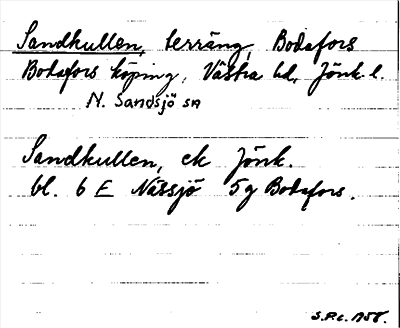 Sandkullen, terräng, Bodafors
Bodafors köping, Västra hd, Jönk. l.
N. Sandsjö sn
Sandkullen, ek Jönk.
bl. 6 E Nässjö 5g Bodafors.
1958.